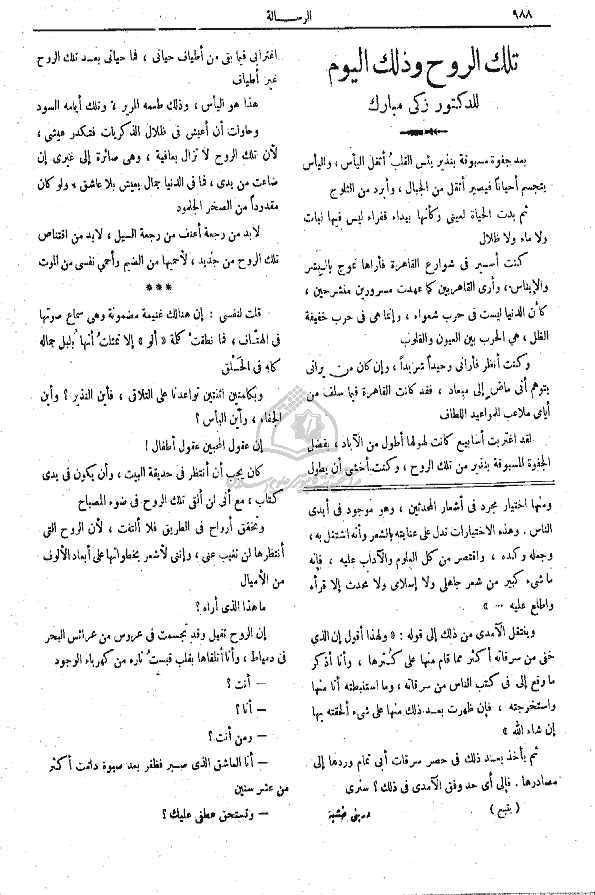 ٩٨٨
الرسالة
تلك الروح وذلك اليوم
للدكتور زكى مبارك
بعد جفوة مسبوقة بنذير يئس القلب أثقل اليأس ، واليأس
يتجسم أحياناً فيصير أثقل من الجبال ، وأبرد من الثلوج
ثم بدت الحياة لعينى وكأنها بيداء قفراء ليس فيها نبات
ولا ماء ولا ظلال
كنت أسير فى شوارع القاهرة فأراها تموج بالبشر
والإيناس، وأرى القاهريين كما عهدت مسرورين منشرحين ،
كأن الدنيا ليست فى حرب شعواء ، وإنما هى فى حرب خفيفة
الظل ، هى الحرب بين العيون والقلوب
وكنت أنظر فأرانى وحيداً شريداً ، وإن كان من يرانى
يتوهم أنى ماض إلى ميعاد ، فقد كانت القاهرة فيما سلف من
أيامى ملاعب للمواعيد اللطاف
لقد اغتربت أسابيع كانت لهولها أطول من الآباد ، بفضل
الجفوة المسبوقة بنذير من تلك الروح ، وكنت أخشى أن يطول
اغترابى فيما بقى من أطياف حياتى ، فما حياتى بعد تلك الروح
غير أطياف
هذا هو اليأس ، وذلك طعمه المرير ، وتلك أيامه السود
وحاولت أن أعيش فى ظلال الذكريات فتكدر عيشى ،
لأن تلك الروح لا تزال بعافية ، وهى صائرة إلى غيرى إن
ضاعت من يدى ، فما فى الدنيا جمال يعيش بلا عاشق ، ولو كان
مقدوداً من الصخر الجلمود
لابد من رجعة أعنف من رجعة السيل ، لابد من اقتناص
تلك الروح من جديد ، لأحميها من الضيم وأحمى نفسى من الموت
***
قلت لنفسى : إن هنالك غنيمة مضمونة وهى سماع صوتها
فى الهتاف ، فما نطقت كلمة « ألو » إلا تمثلت أنها بلبل جماله
كله فى الحلق
وبكلمتين اثنتين تواعدنا على التلاقى ، فأين النذير ؟ وأين
الجفاء ، وأين اليأس ؟
إن عقول المحبين عقول أطفال !
كان يجب أن أنتظر فى حديقة البيت ، وأن يكون فى يدى
كتاب ، مع أنى لن ألقى تلك الروح فى ضوء المصباح
وتخفق أرواح فى الطريق فلا ألتفت ، لأن الروح التى
أنتظرها لن تغيب عنى ، وإننى لأشعر بخطواتها على أبعاد الألوف
من الأميال
ما هذا الذى أراه ؟
إن الروح تقبل وقد تجسمت فى عروس من عرائس البحر
فى دمياط ، وأنا أتلقاها بقلب قبست ناره من كهرباء الوجود
— أنت ؟
— أنا ؟
— ومن أنت ؟
— أنا العاشق الذى صبر فظفر بعد صبوة دامت أكثر
من عشر سنين
— وتستحق عطفى عليك ؟
ومنها اختيار مجرد فى أشعار المحدثين ، وهو موجود فى أيدى
الناس . وهذه الاختيارات تدل على عنايته بالشعر وأنه اشتغل به ،
وجعله وكده ، واقتصر من كل العلوم والآداب عليه ، فإنه
ما شىء كبير من شعر جاهلى ولا إسلامى ولا محدث إلا قرأه
واطلع عليه ... »
وينتقل الآمدى من ذلك إلى قوله : « ولهذا أقول إن الذى
خفى من سرقاته أكثر مما قام منها على كثرها ، وأنا أذكر
ما وقع إلى فى كتب الناس من سرقاته ، وما استنبطته أنا منها
واستخرجته ، فإن ظهرت بعد ذلك منها على شىء ألحقته بها
إن شاء الله »
ثم يأخذ بعد ذلك فى حصر سرقات أبى تمام وردها إلى
مصادرها . فإلى أى حد وفق الآمدى فى ذلك ؟ سنرى
( يتبع )
درينى خشبة